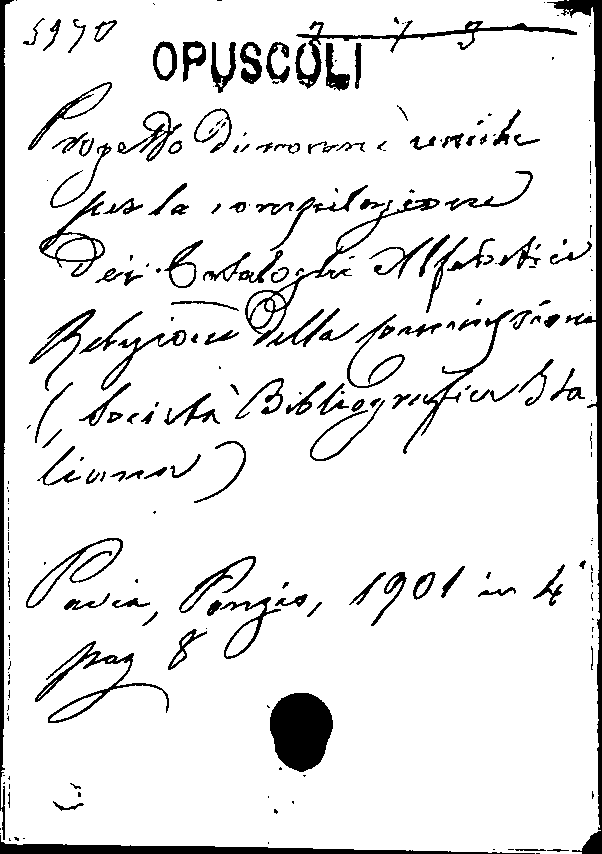 5970 7 7 3
OPUSCOLI
Progetto di norme uniche
per la compilazione
dei Cataloghi Alfabetici
Relazione della Commissione
(Società Bibliografica Ita-
liana)
Pavia, Ponzio, 1901 in 4°
pag 8